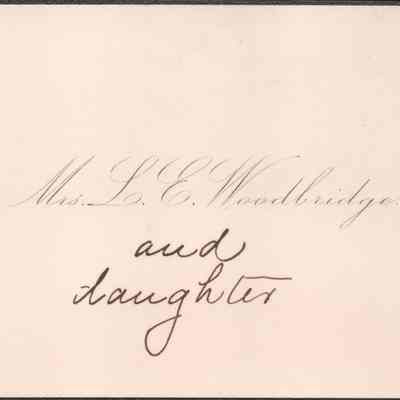 Mrs. L. E. Woodbridge.
and
daughter